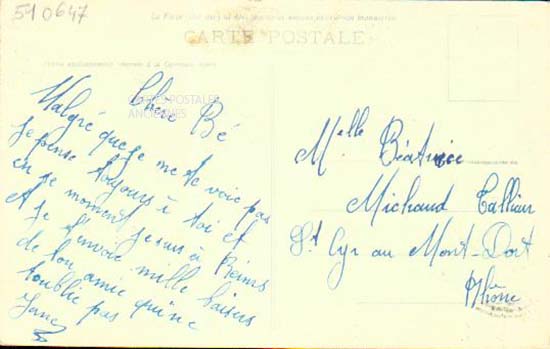 510647
CARTE POSTALE
CARTES POSTALES
ANCIENNES
Chère Bé
Malgré que je ne te voie pas
je pense toujours à toi et
en ce moment je suis à Reims
et je t'envoie mille baisers
de ton amie qui ne
t'oublie pas
Mlle Béatrice
Michaud Tallian
St Cyr au Mont-Dort
Rhône